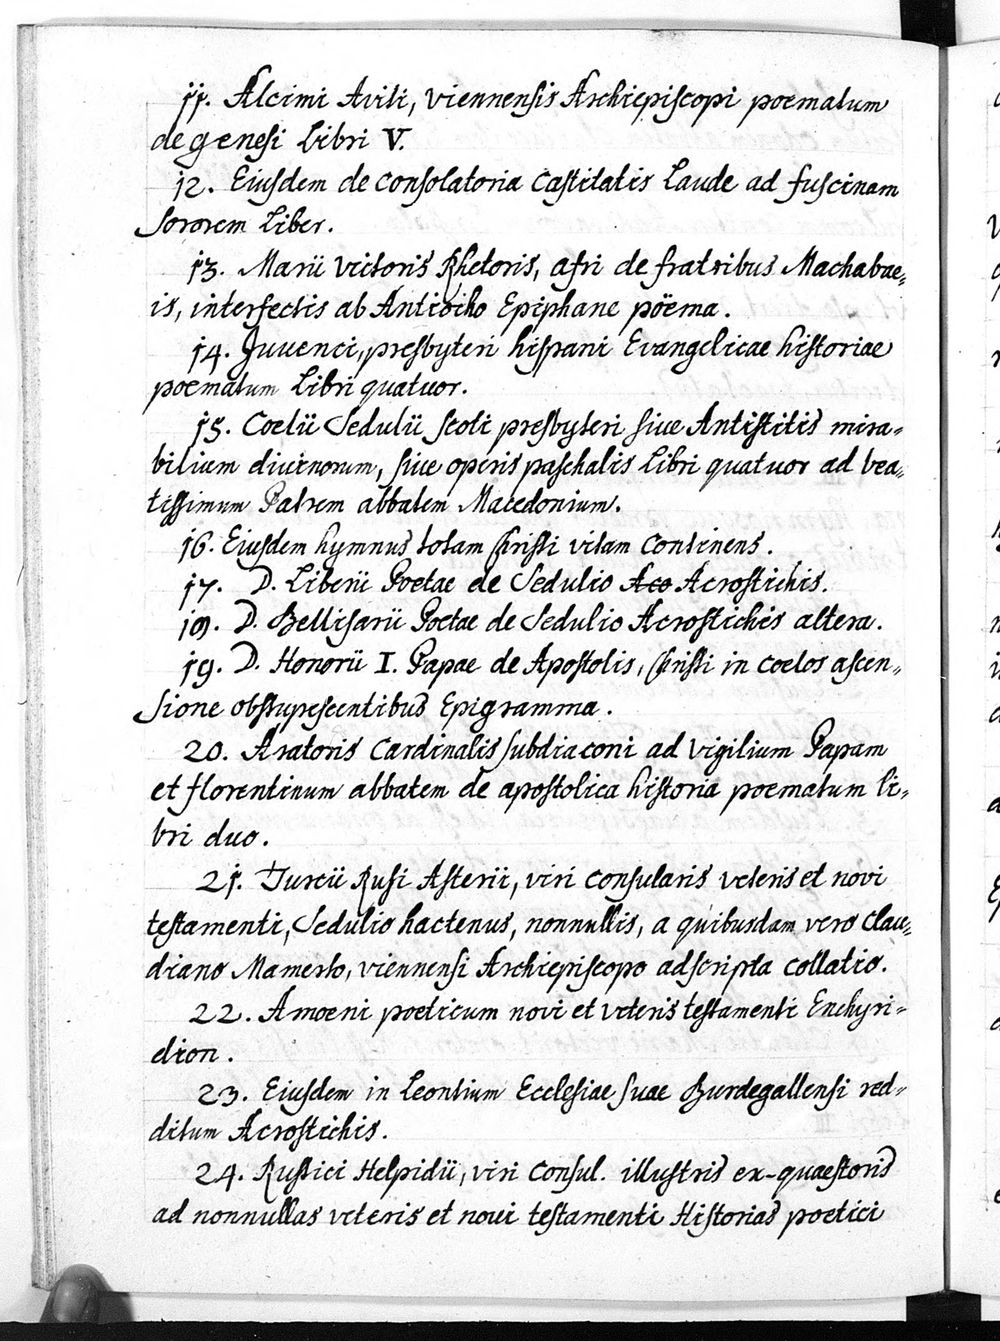 11. Alcimi Aviti, Viennensis Archiepiscopi poematum
de genesi Libri V.
12. Eiusdem de consolatoria castitatis Laude ad fuscinam
sororem Liber.
13. Marii Victoris Rhetoris, afri de fratribus Machabae=
is, interfectis ab Antiocho Epiphane pöema.
14. Juuenci, presbyteri hispani Evangelicae historiae
poematum Libri quatuor.
15. Coelii Sedulii scoti presbyteri siue Antistitis mira=
bilium diuinorum, siue operis paschalis Libri quatuor ad bea=
tissimum Patrem abbatem Macedonium.
16. Eiusdem hymnus totam Christi vitam continens.
17. D. Liberii Poetae de Sedulio Aco Acrostichis.
18. D. Bellisarii Poetae de Sedulio Acrostichis altera.
19. D. Honorii I. Papae de Apostolis, Christi in coelos ascen=
sione obstupescentibus Epigramma.
20. Aratoris Cardinalis subdiaconi ad Vigilium Papam
et florentinum abbatem de apostolica historia poematum li=
bri duo.
21. Turcii Rufi Asterii, viri consularis veteris et novi
testamenti, Sedulio hactenus, nonnullis, a quibusdam vero Clau=
diano Mamerto, viennensi Archiepiscopo adscripta collatio.
22. Amoeni poeticum novi et veteris testamenti Enchyri=
dion.
23. Eiusdem in Leontium Ecclesiae suae Burdegallensi red=
ditum Acrostichis.
24. Rustici Helpidii, viri Consul. illustris ex-quaestoris
ad nonnullas veteris et noui testamenti Historias poetici